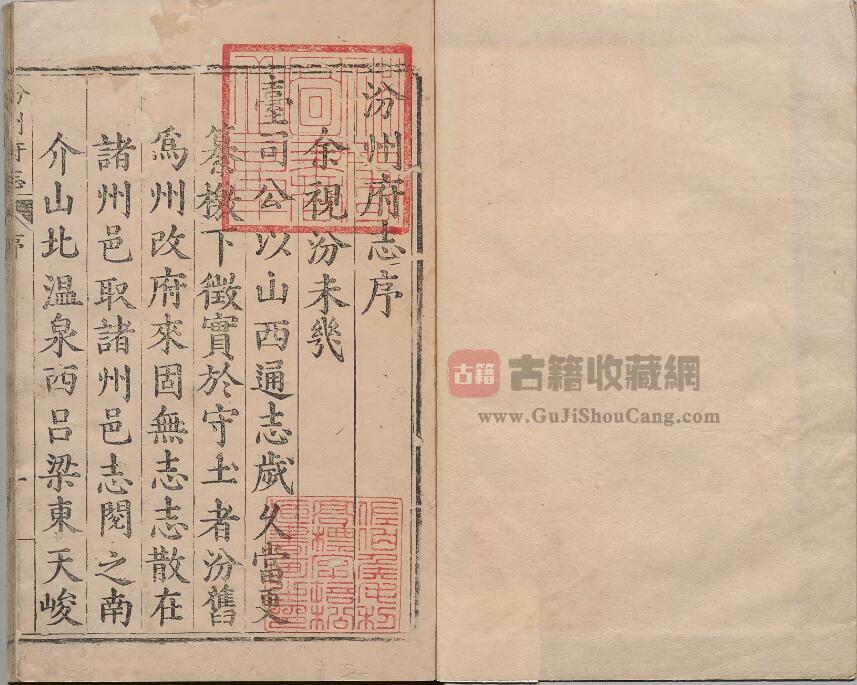 汾州府志序
余視汾未幾
臺司公以山西通志歲久當更
纂檄下徵實於守土者汾舊
爲州改府來固無志志散在
諸州邑取諸州邑志閱之南
介山北溫泉西呂梁東天峻
汾州府志
序
一
古籍
古籍收藏網
www.GuJiShouCang.com